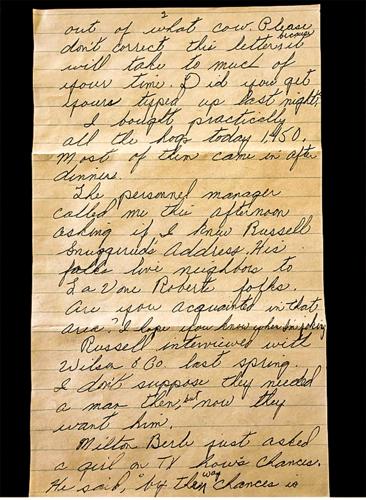 2
out of what cow. Please
don't correct this letter, it because
will take to much of
your time. Did you get
yours typed up last night?
I bought practically
all the hogs today 1,450.
Most of them came in after
dinner.
The personnel manager
called me this afternoon
asking if I knew Russell
Snuggerud's address. His
folks live neighbors to
La Vone Robert folks.
Are you acquainted in that
area? I hope you know when I'm joking
Russell interviewed with
Wilson & Co. last spring.
I don't suppose they needed
a man then, but now they
want him.
Milton Berle just asked
a girl on TV how's chances.
He said, "by the way chances is